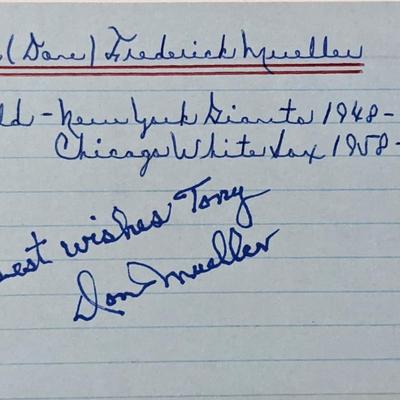 (Don) Frederick Mueller
ld - New York Giants 1948-
Chicago White Sox 1958-
est wishes Tony
Don Mueller